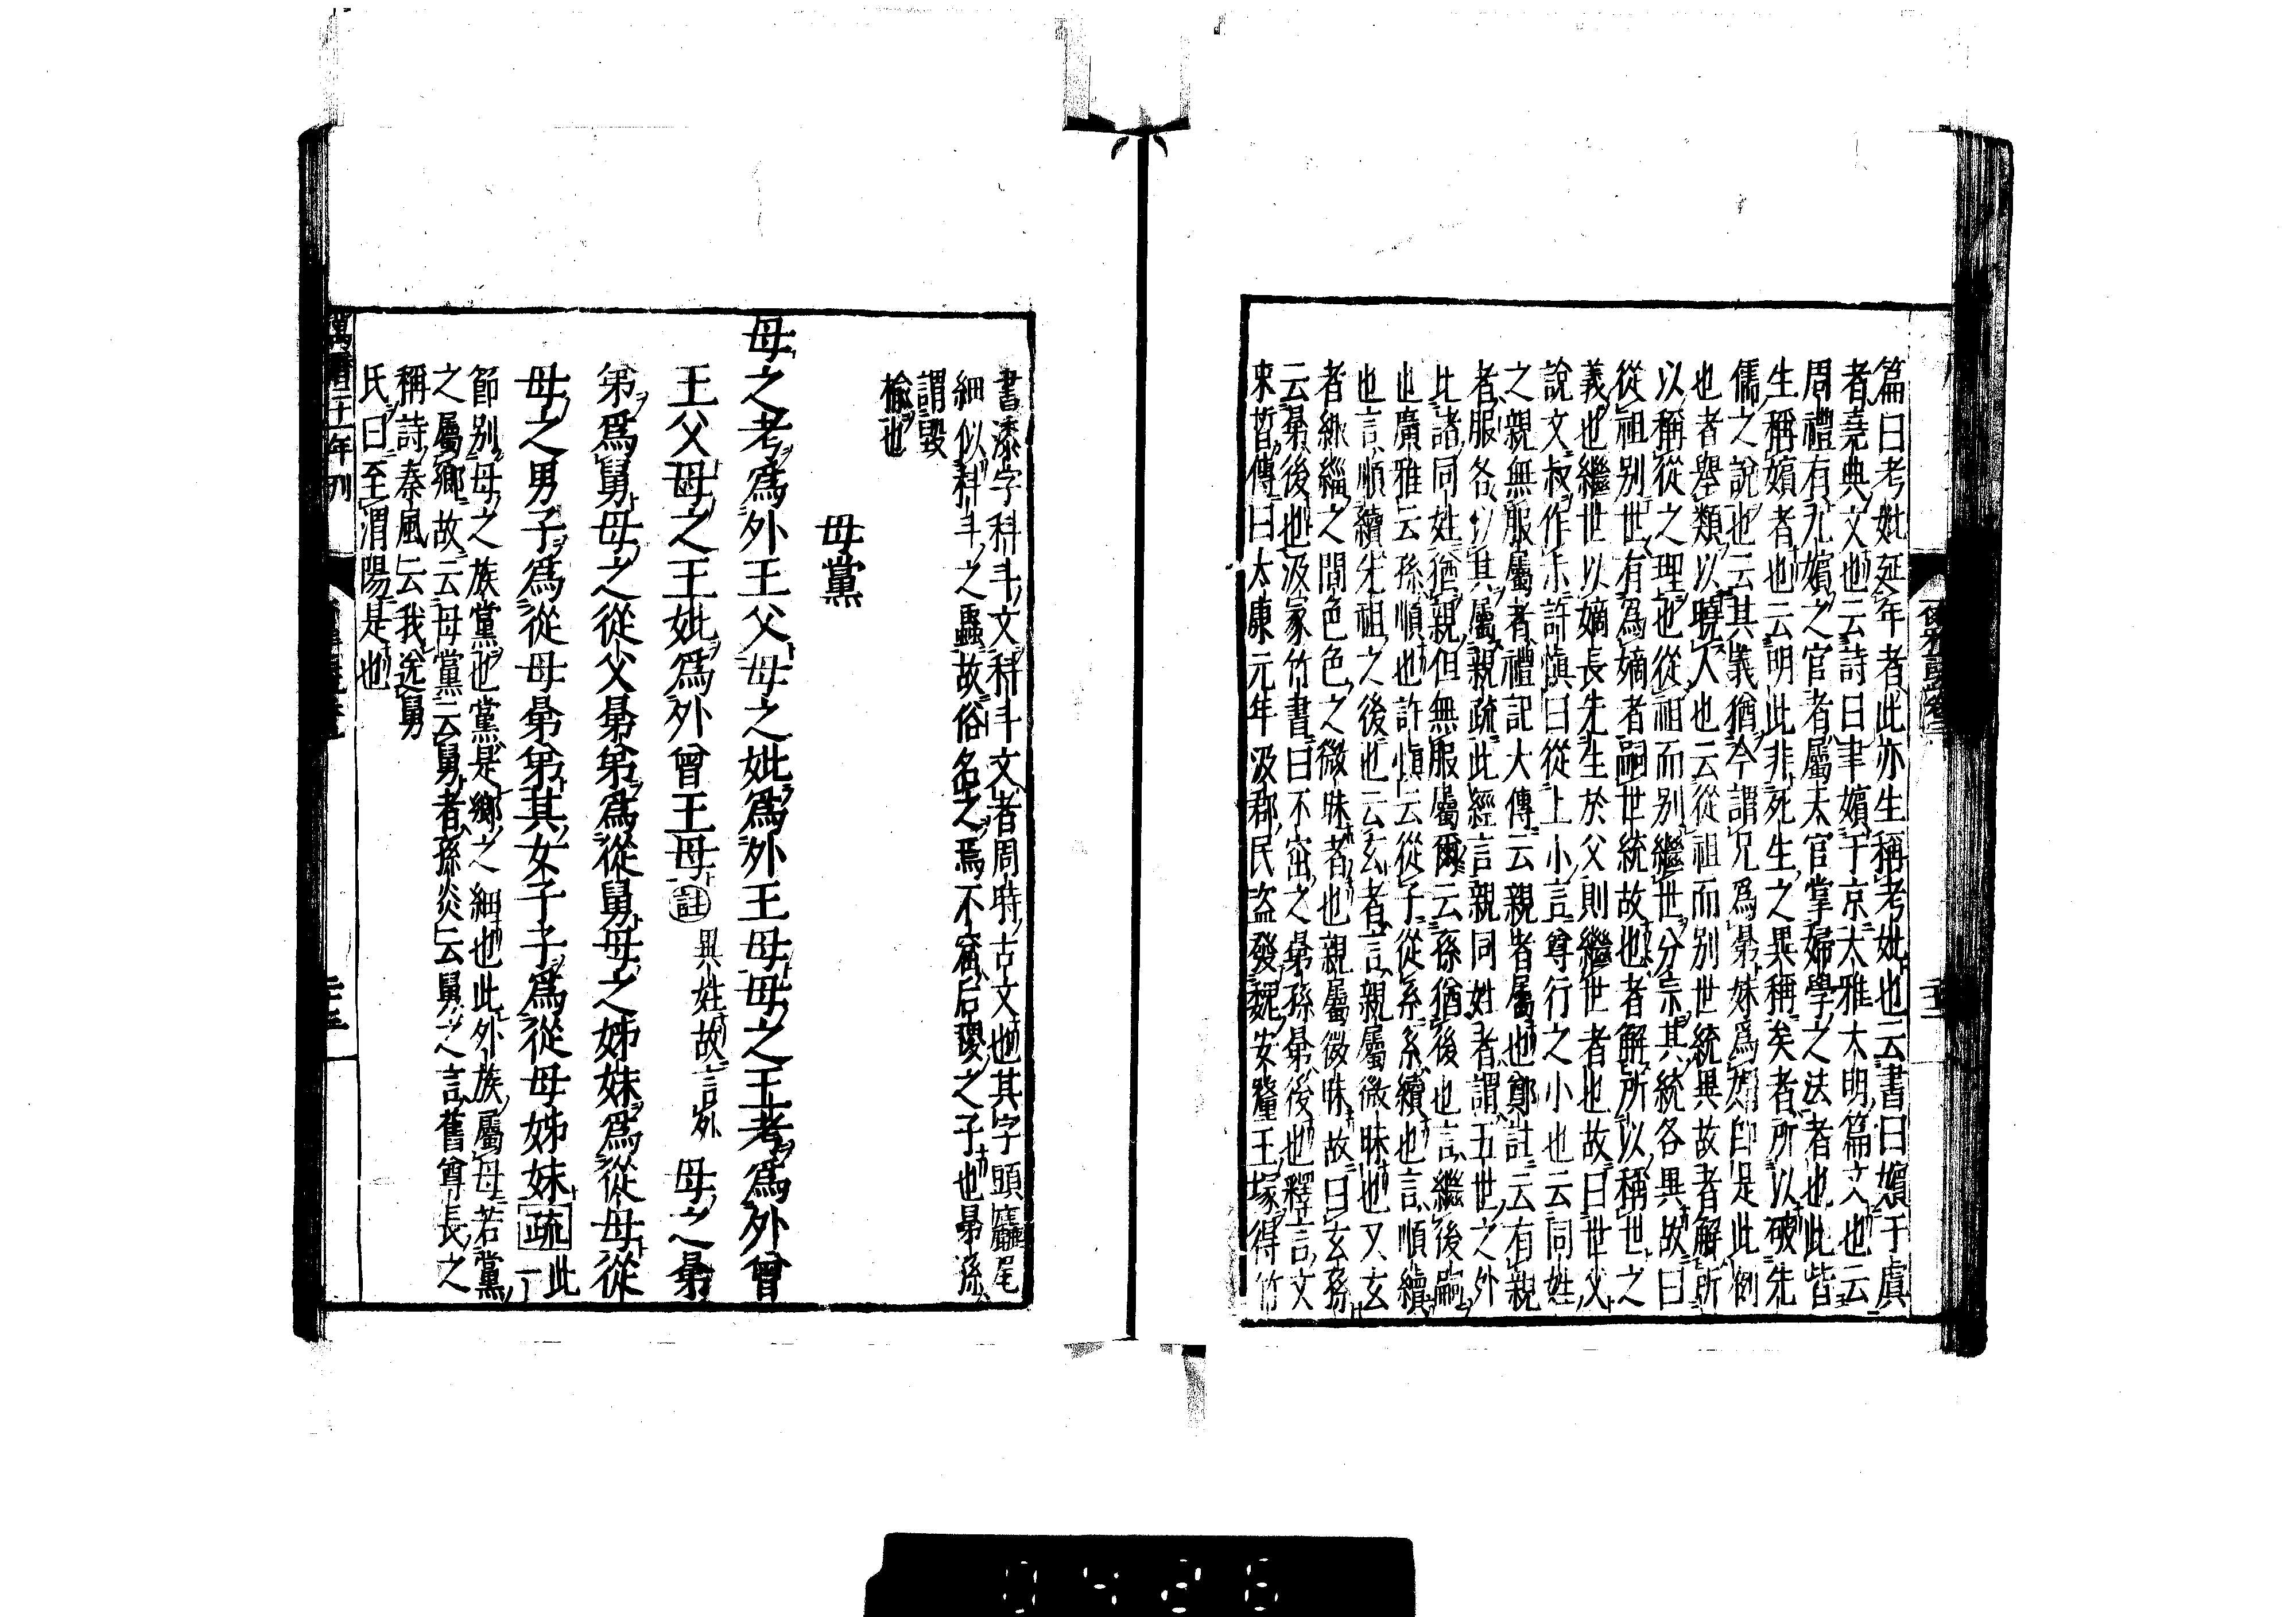 篇曰考妣延年者此亦生稱考妣也云書曰嬪于虞
者堯典文也云詩曰聿嬪于京大雅大明篇文也云
周禮有九嬪之官者屬太官掌婦學之法者也此皆
生稱嬪者也云明此非死生之異稱矣者所以破先
儒之說也云其義猶今謂兄爲晜妹爲媦即是此例
也者舉類以曉人也云從祖而別世統異故者解所
以稱從之理也從祖而別繼世分宗其統各異故曰
從祖別世有為嫡者嗣世統故也者解所以稱世之
義也繼世以嫡長先生於父則繼世者也故曰世父
說文叔作尗許愼曰從上小言尊行之小也云同姓
之親無服屬者禮記大傳云親者屬也鄭註云有親
者服各以其屬親疏此經言親同姓者謂五世之外
比諸同姓猶親但無服屬爾云孫猶後也言繼後嗣
也廣雅云孫順也許愼云從子從系系續也言順續
也言順續先祖之後也云玄者言親屬微昧也又玄
者緅緇之間色色之微昧者也親屬微昧故曰玄孫
云晜後也汲冢竹書曰不窋之晜孫晜後也釋言文
束晳傳曰太康元年汲郡民盗發魏安釐王塚得竹
書漆字科斗文科斗文者周時古文也其字頭麤尾
細似科斗之蟲故俗名之焉不窋后稷之子也晜孫
謂毀
楡也
母黨
母之考爲外王父母之妣爲外王母母之王考爲外曾
王父母之王妣爲外曾王母註異姓故言外母之晜
弟爲舅母之從父晜弟爲從舅母之姊妹爲從母從
母之男子爲從母晜弟其女子子爲從母姊妹疏此一
節別母之族黨也黨是鄉之細也此外族屬母若黨
之屬鄉故云母黨云舅者孫炎云舅之言舊尊長之
稱詩秦風云我送舅
氏曰至渭陽是也
萬曆二十一年刊